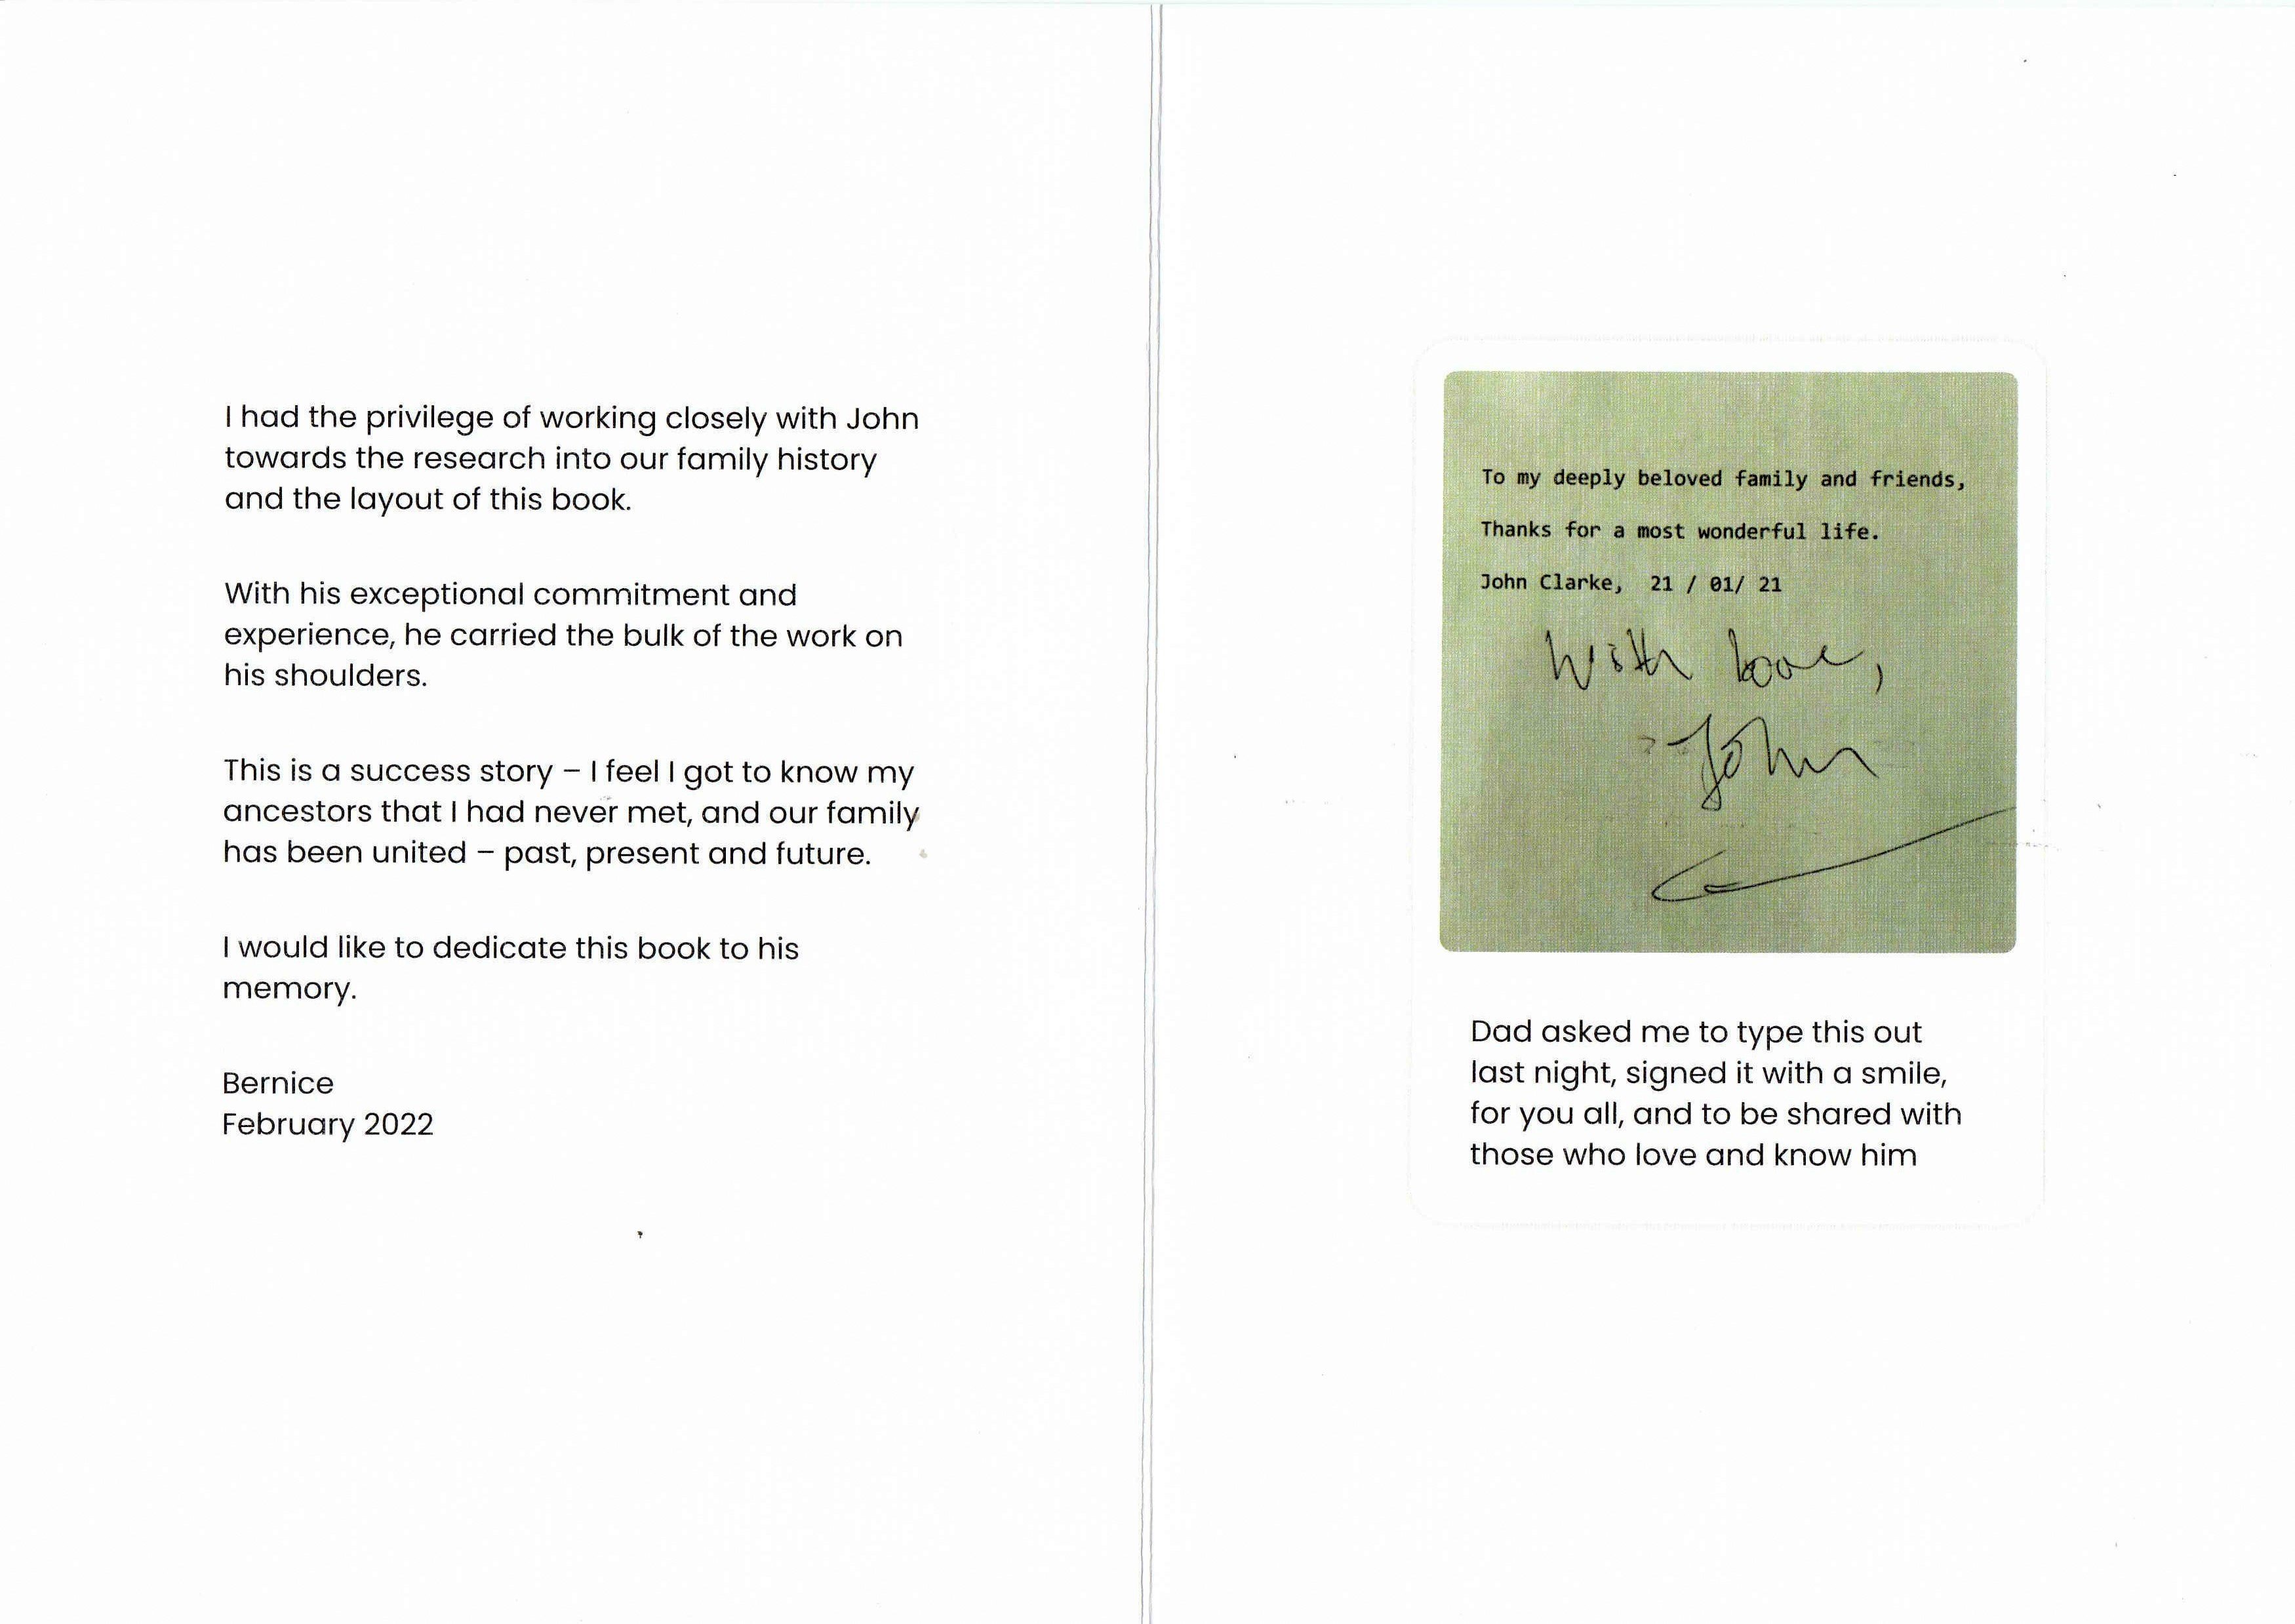 I had the privilege of working closely with John
towards the research into our family history
and the layout of this book.
With his exceptional commitment and
experience, he carried the bulk of the work on
his shoulders.
This is a success story – I feel I got to know my
ancestors that I had never met, and our family
has been united – past, present and future.
I would like to dedicate this book to his
memory.
Bernice
February 2022
To my deeply beloved family and friends,
Thanks for a most wonderful life.
John Clarke,  21 / 01/ 21
With love,
John
Dad asked me to type this out
last night, signed it with a smile,
for you all, and to be shared with
those who love and know him